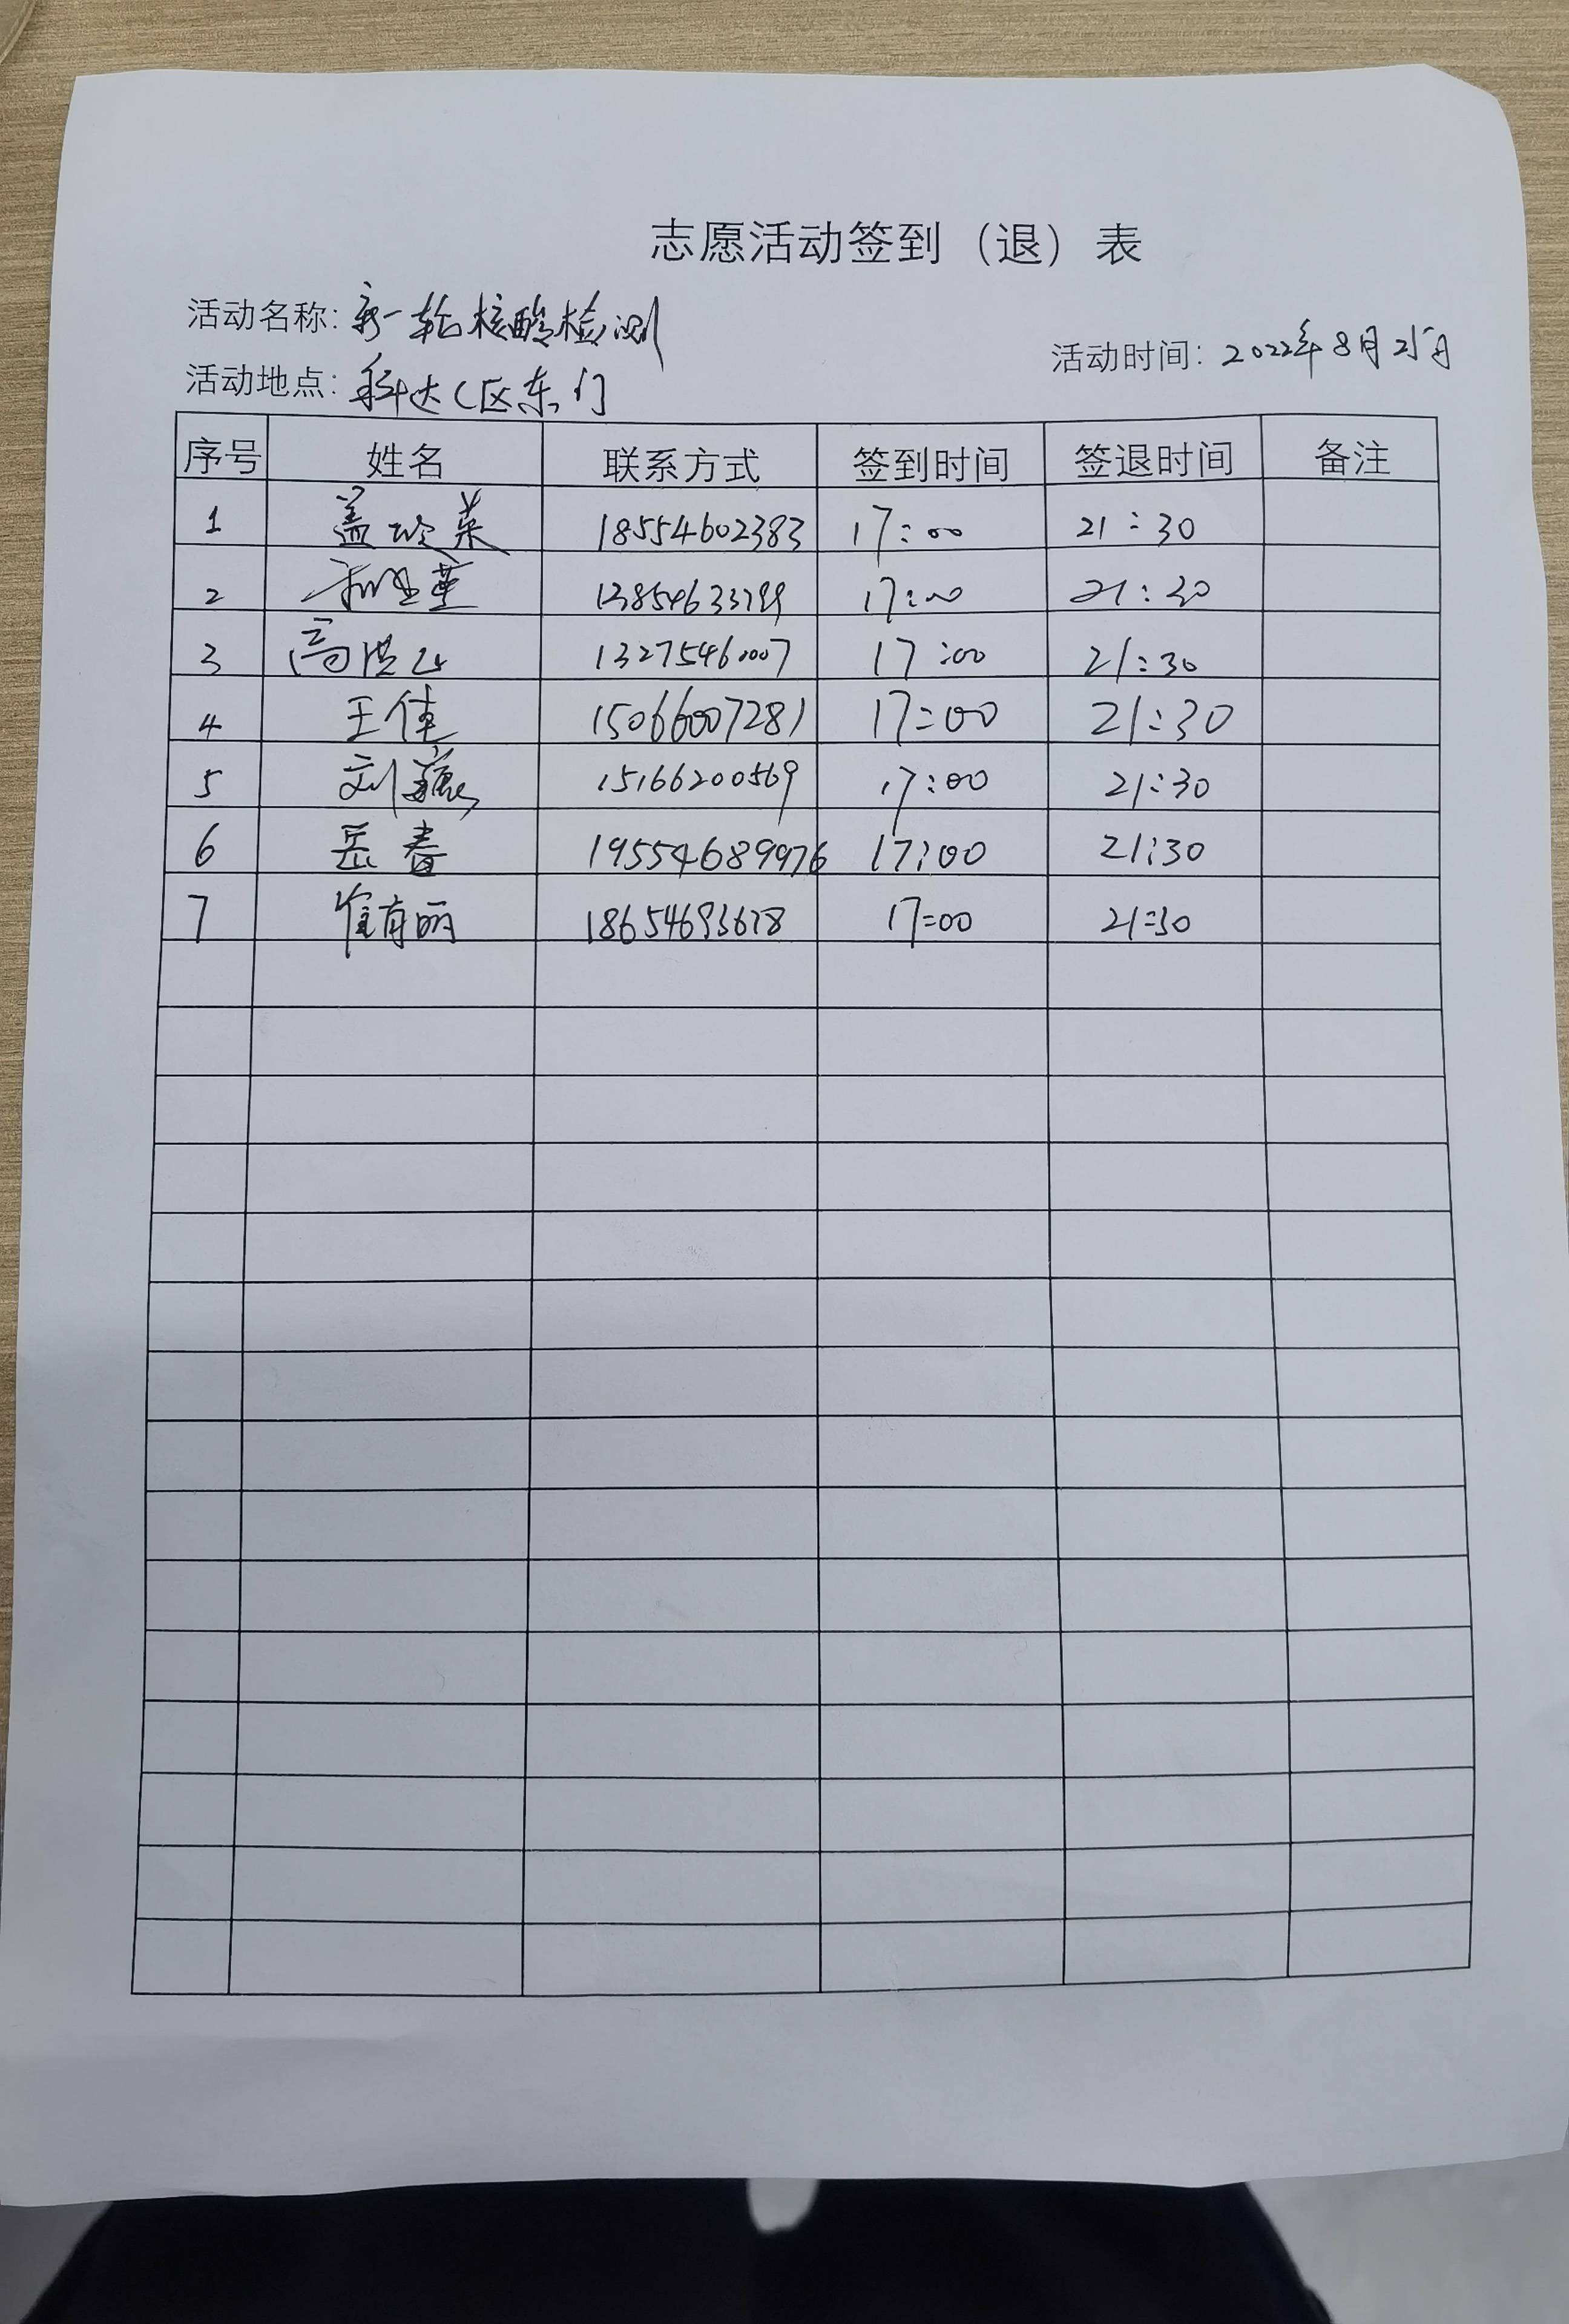 志愿活动签到（退）表
活动名称：新一轮核酸检测
活动时间：2022年8月25日
活动地点：科达C区东门
序号 姓名 联系方式 签到时间 签退时间 备注
1 盖玲英 18554602383 17:00 21:30
2 13854633799 17:00 21:30
3 高洪山 13275460007 17:00 21:30
4 王佳 15066007281 17:00 21:30
5 刘 15166200569 17:00 21:30
6 岳春 19554689976 17:00 21:30
7 崔有丽 18654693678 17:00 21:30